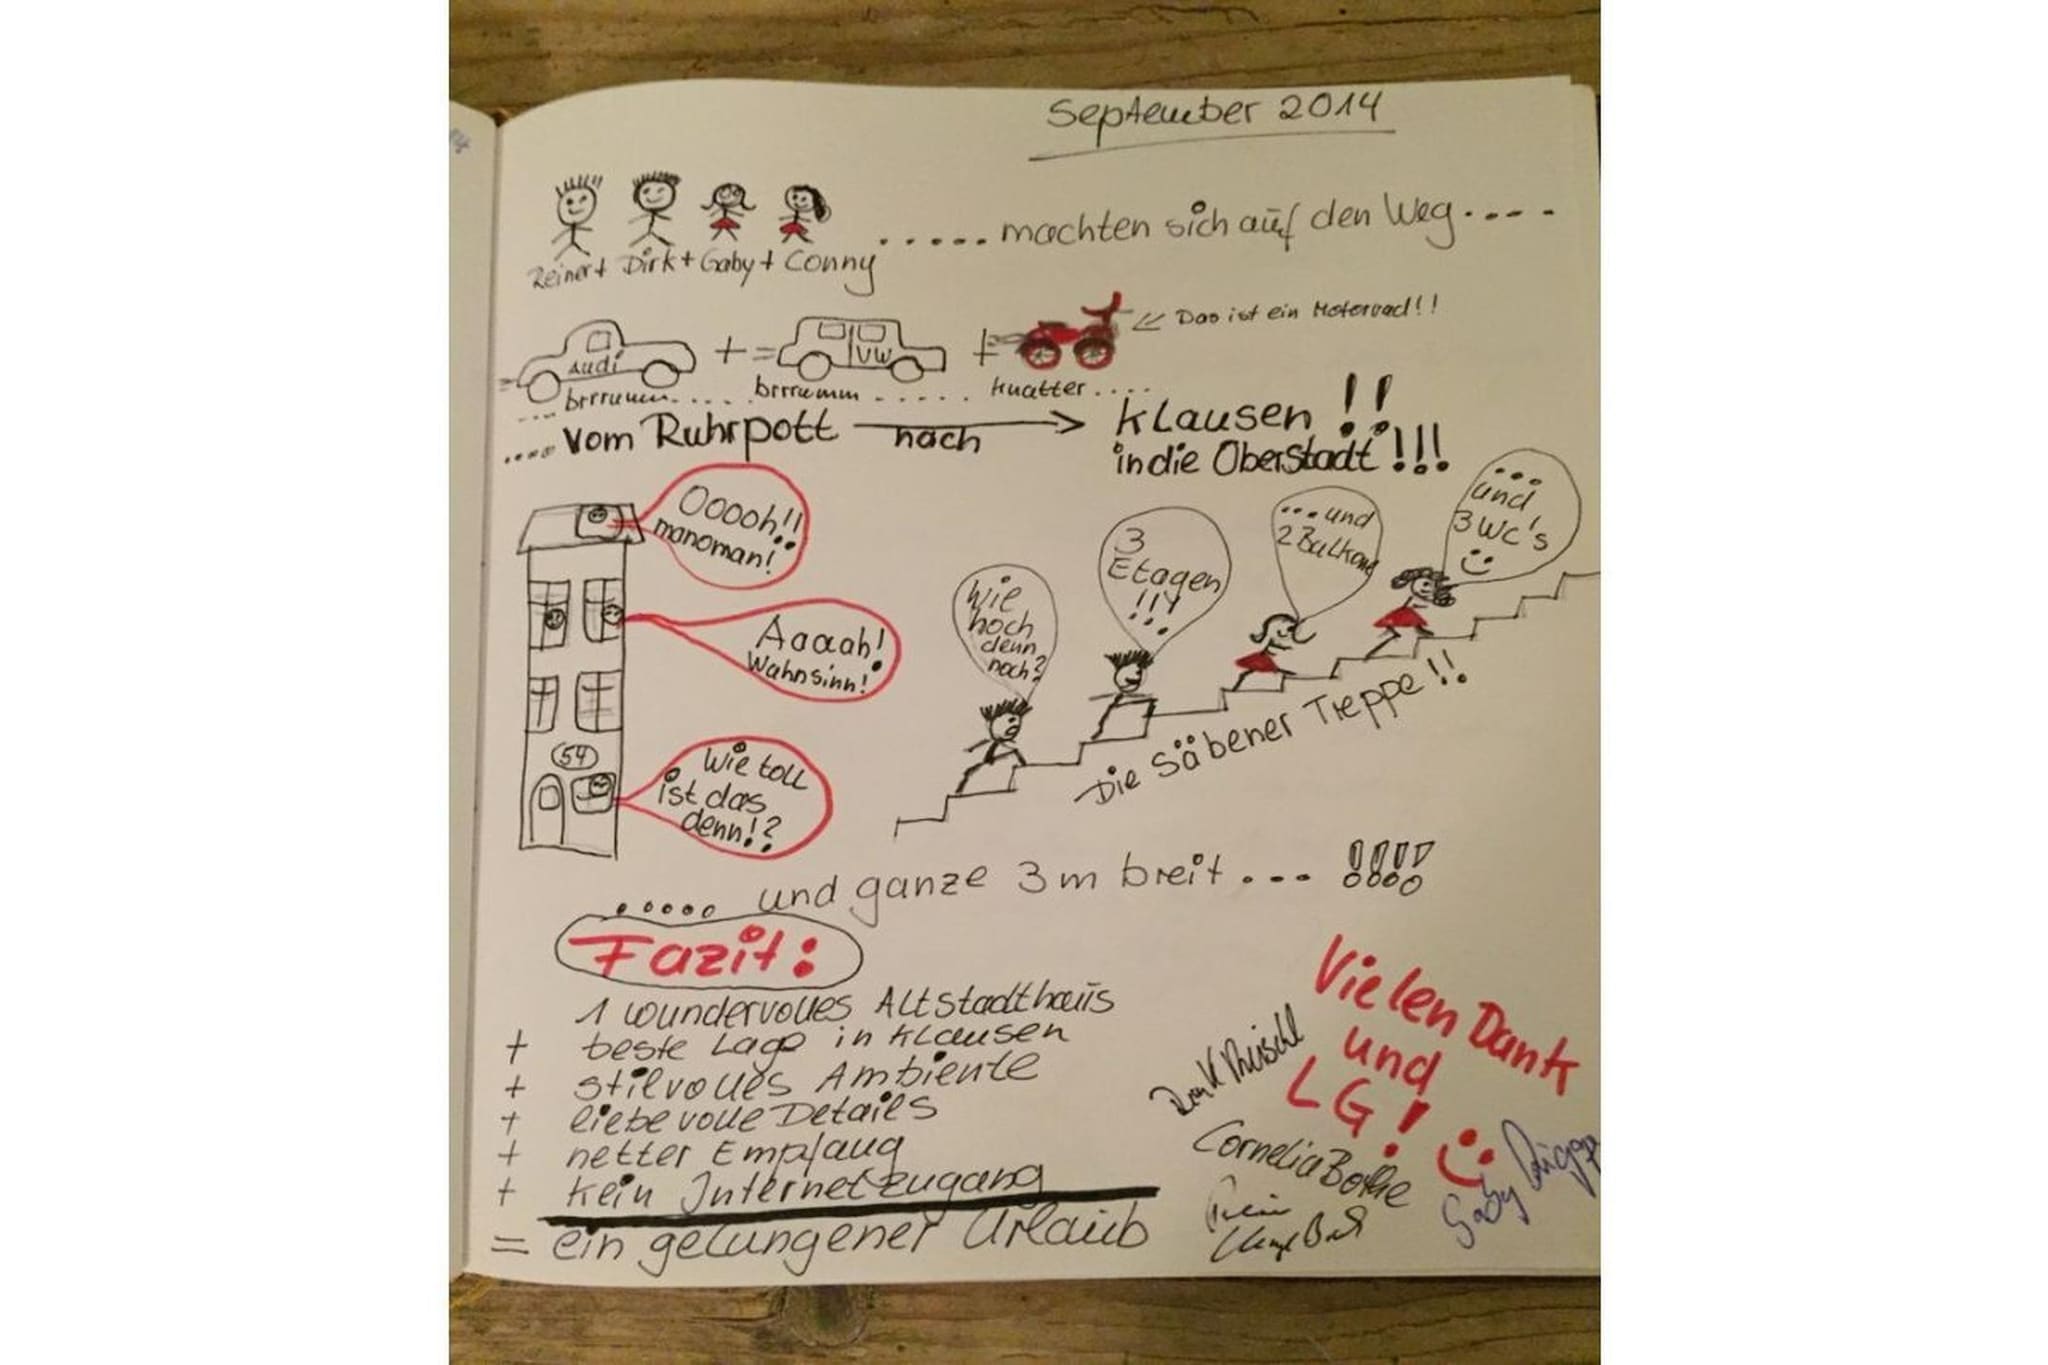 September 2014
Reiner + Dirk + Gaby + Conny
..... machten sich auf den Weg ....
Audi + VW +
<= Das ist ein Motorrad!!
... brrrumm .... brrrumm ..... knatter ....
.... vom Ruhrpott nach Klausen !!
in die Oberstadt !!!
Ooooh!!
manoman!
Aaaah!
Wahnsinn!
54
Wie toll
ist das
denn!?
Wie
hoch
denn
noch?
3
Etagen
!!!
...und
2 Balkone
...
und
3 WC's
Die Säbener Treppe!!
..... und ganze 3 m breit ... !!!!
Fazit:
1 wundervolles Altstadthaus
+ beste Lage in Klausen
+ stilvolles Ambiente
+ liebevolle Details
+ netter Empfang
+ kein Internetzugang
= ein gelungener Urlaub
Vielen Dank
und
LG!
Cornelia Bothe
Gaby